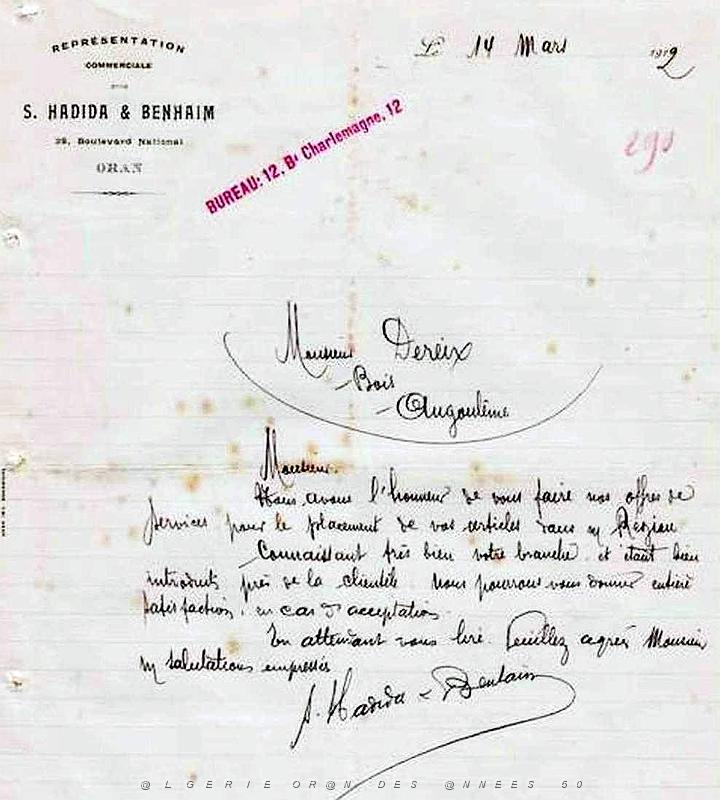 REPRÉSENTATION
COMMERCIALE
S. HADIDA & BENHAIM
29, Boulevard National
ORAN
Le 14 Mars 1912
BUREAU: 12, Bd Charlemagne, 12
290
Monsieur Dereix
-Bois
-Angoulême
Monsieur.
Nous avons l'honneur de vous faire nos offres de
services pour le placement de vos articles dans n/ Région
Connaissant très bien votre branche et étant bien
introduits près de la clientèle. Nous pourrons vous donner entière
satisfaction, en cas d'acceptation.
En attendant vous lire. Veuillez agréer Monsieur
n/ salutations empressées
S. Hadida & Benhaim
@LGERIE OR@N DES @NNEES 50